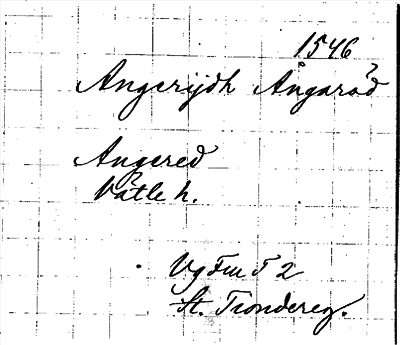 1546
Angerijdh Ångaråd
Angered
Vättle h.
Vg Fru 5 2
St. Tiondereg.